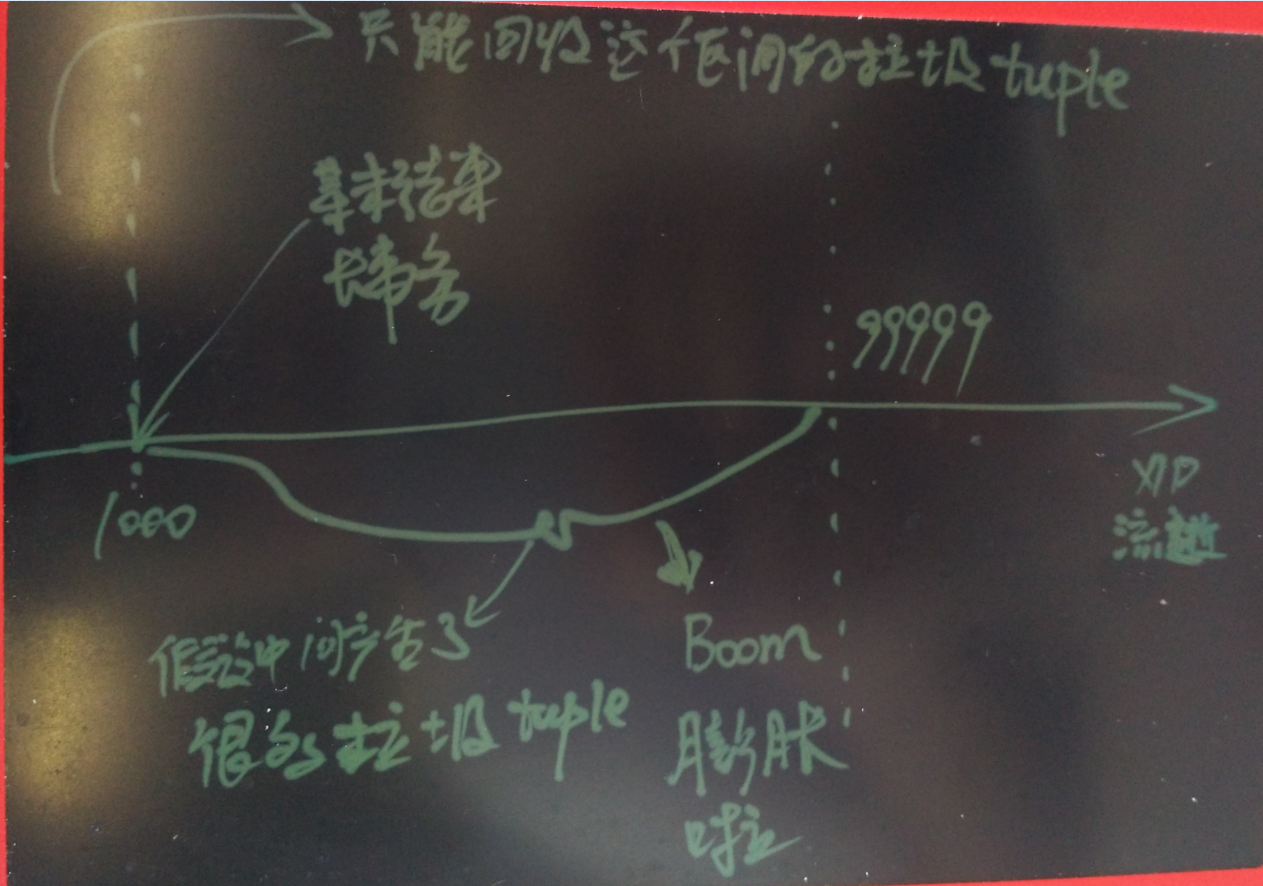 只能回收这个区间的垃圾 tuple
某未结束
长事务
99999
1000
XID
流逝
假设中间产生了
很多垃圾 tuple
Boom
膨胀
啦